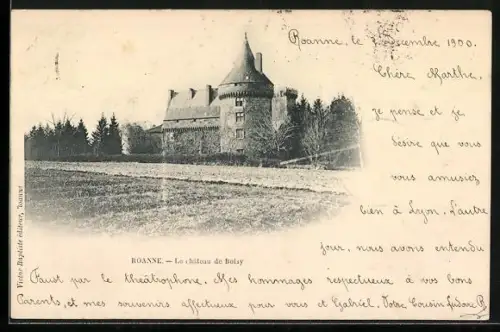 Roanne, le décembre 1900.
Chère Marthe,
je pense et je
désire que vous
vous amusiez
bien à Lyon. L'autre
jour, nous avons entendu
Faust par le théâtrophone. Mes hommages respectueux à vos bons
Parents, et mes souvenirs affectueux pour vous et Gabriel. Votre Cousin Isidore B
ROANNE. — Le château de Boisy
Victor Baptiste éditeur, Roanne